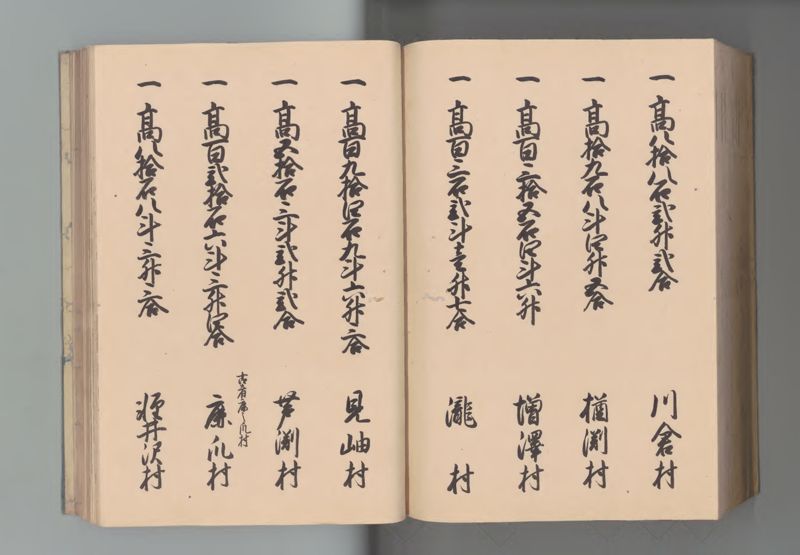 一 高八拾八石弐升弐合 川倉村
一 高拾九石八斗四升五合 楢渕村
一 高百三拾五石四斗六升 増澤村
一 高百三石弐斗壱升七合 瀧村
一 高百九拾四石九斗六升六合 見岫村
一 高五拾石三斗弐升弐合 芦渕村
一 高百弐拾石六斗三升四合 村
一 高八拾石八斗三升六合 軽井沢村